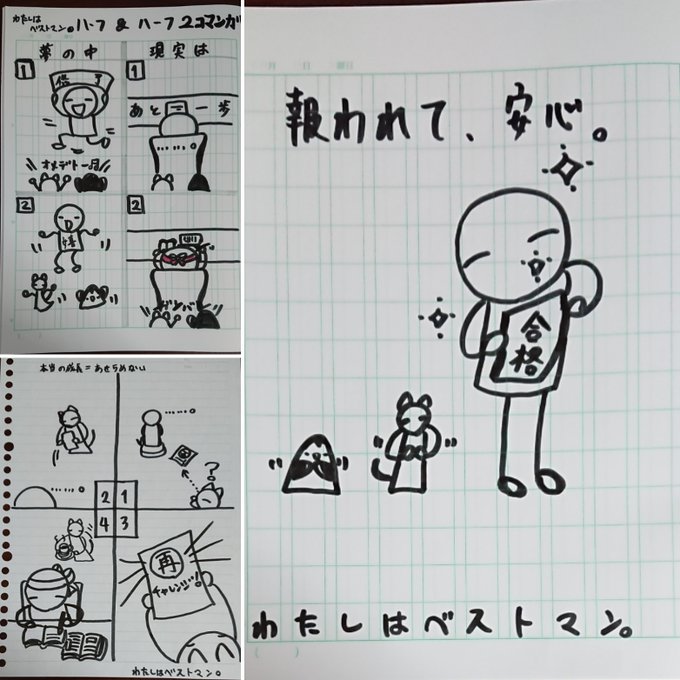 わたしは
ベストマン。ハーフ & ハーフ 2コマンガ
夢の中
現実は
1
オメデトー
1
あと一歩
……。
2
2
ガンバレ
本当の成長=あきらめない
……。
?
……。
2 1
4 3
再
チャレンジ!
わたしはベストマン。
月 日 曜日
報われて、安心。
合格
わたしはベストマン。